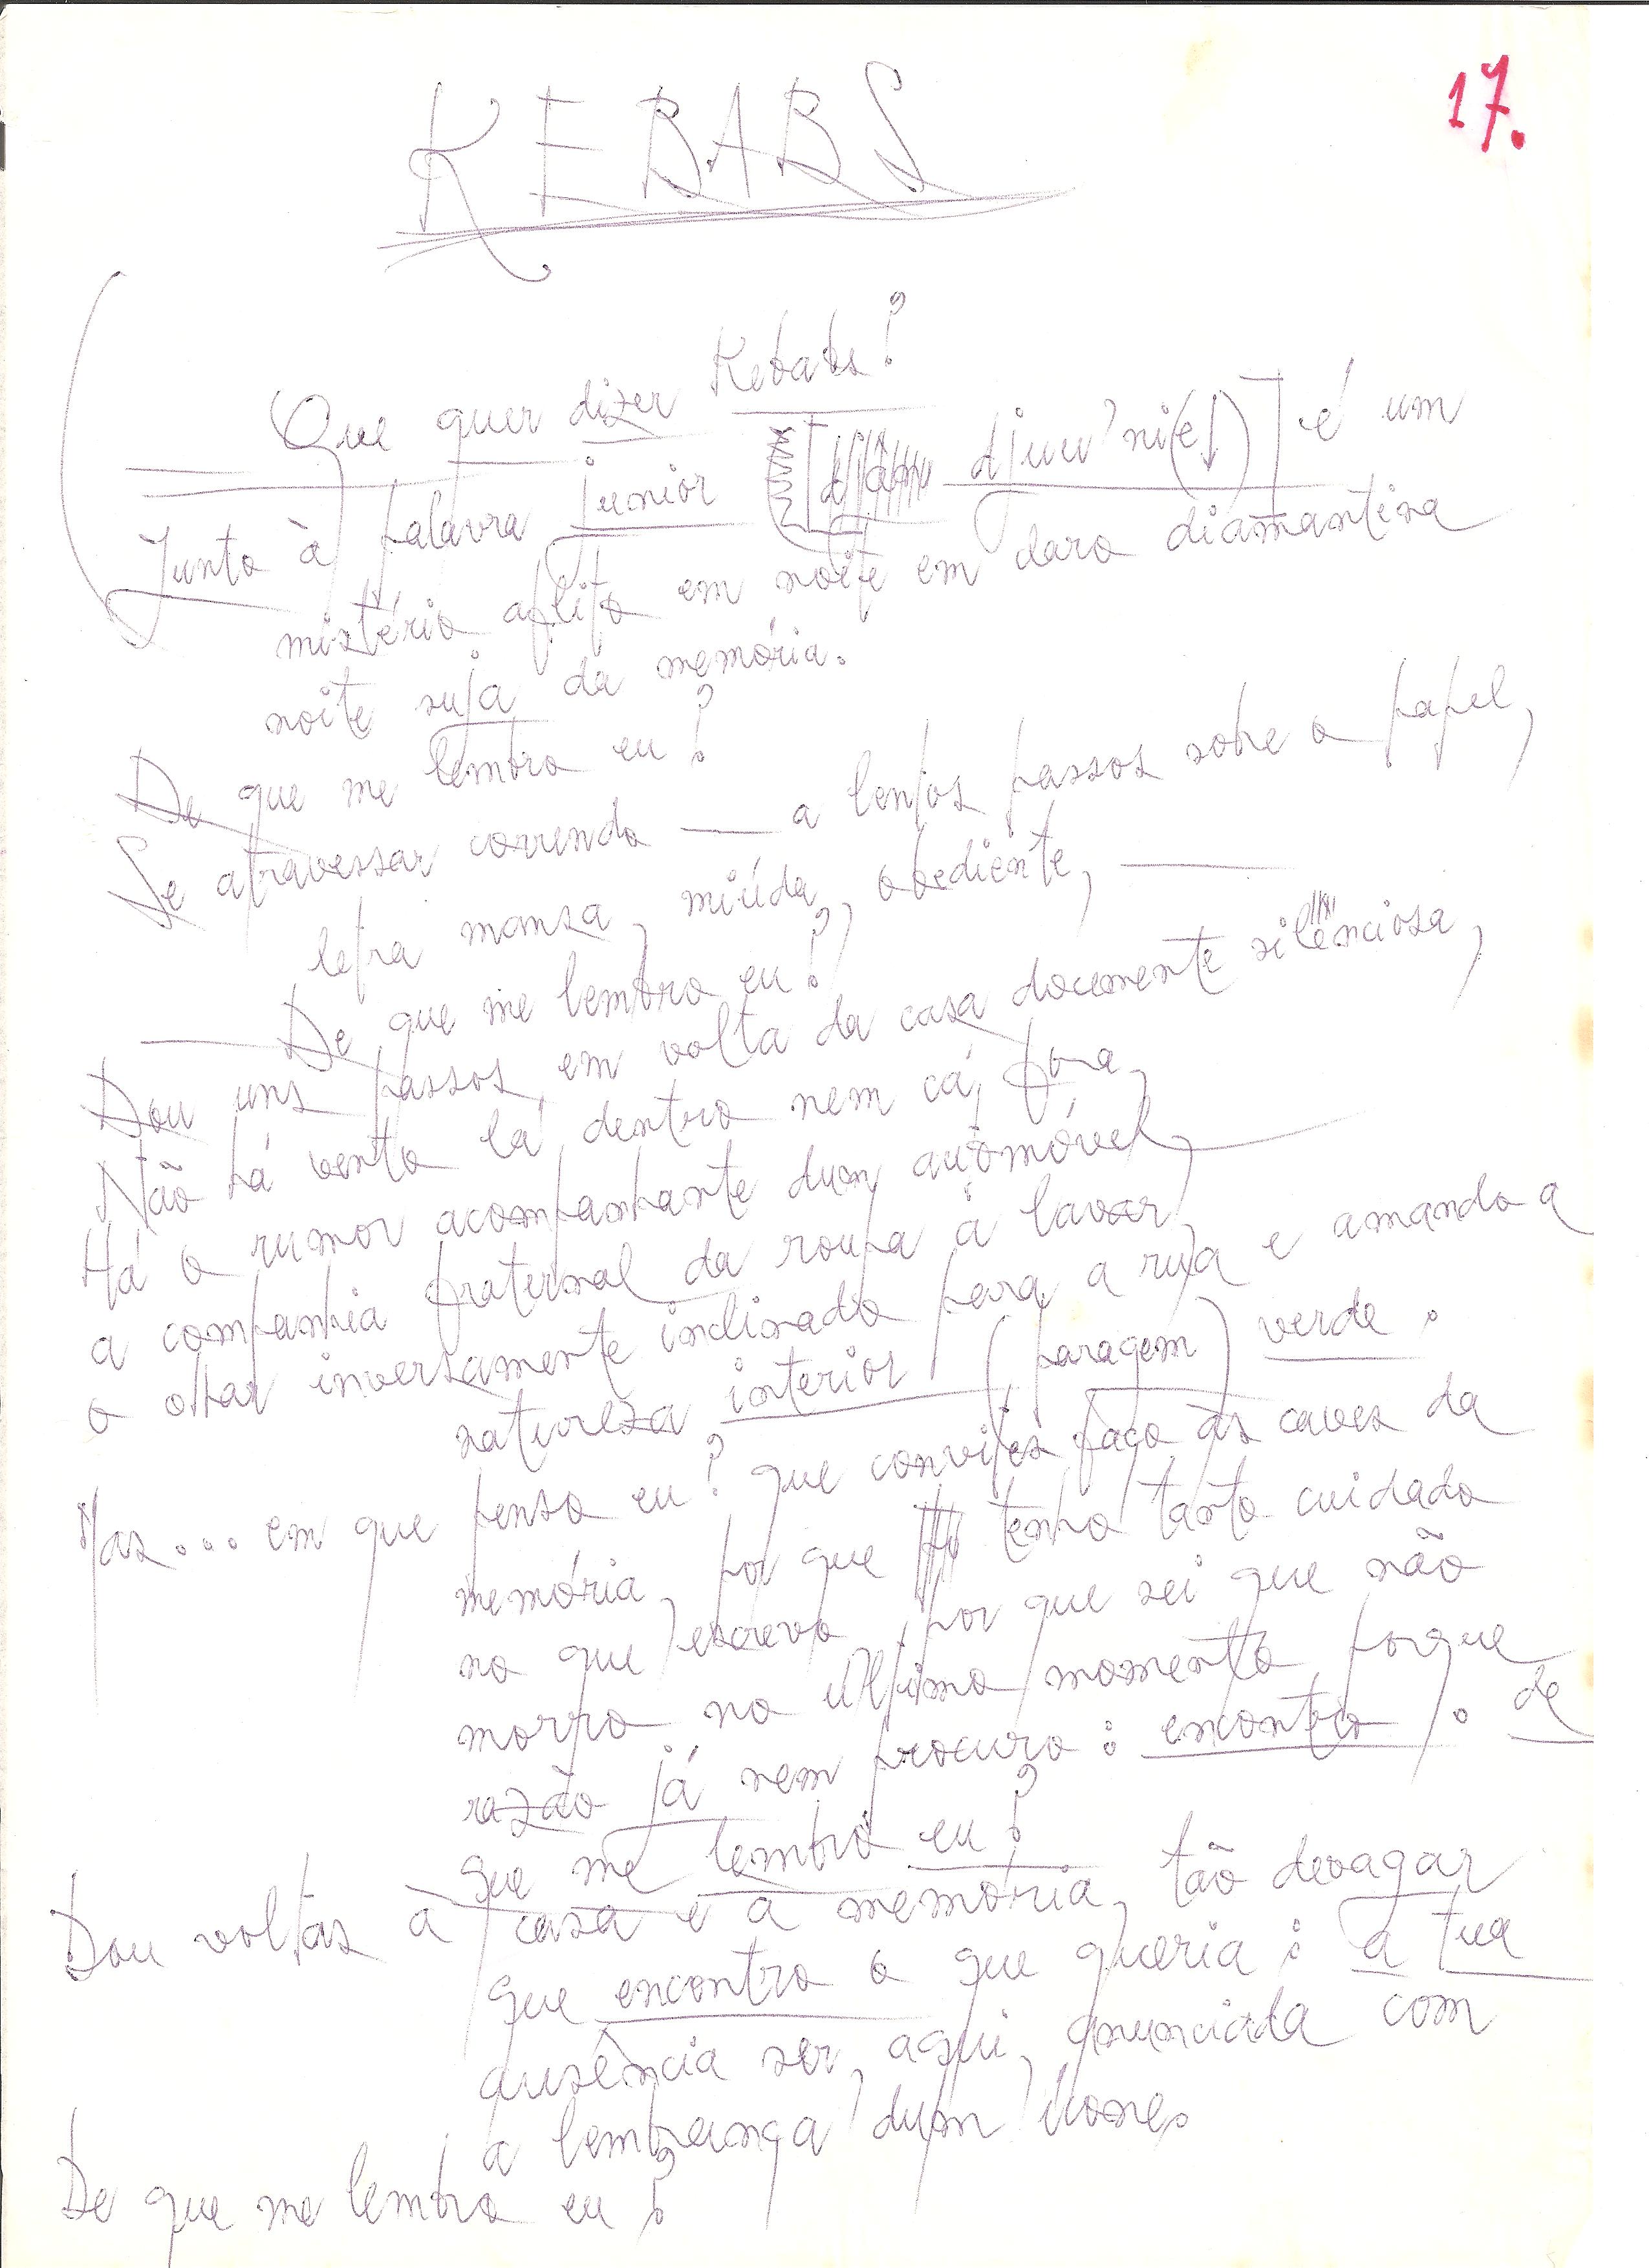 17.
KEBABS
Que quer dizer Kebabs?
Junto à palavra junior [djuu'ni(e↓)] é um
mistério aflito em noite em clara diamantina
noite suja da memória.
De que me lembro eu?
Se atravessar correndo — a lentos passos sobre o papel,
letra mansa, miúda, obediente, —
— De que me lembro eu?
Dou uns passos em volta da casa docemente silenciosa,
Não há vento lá dentro nem cá fora,
Há o rumor acompanhante dum automóvel, —
a companhia fraternal da roupa a lavar,
o olhar inversamente inclinado para a rua e amando a
natureza interior (paragem) verde.
Mas... em que penso eu? que convites faço às caves da
memória, por que tenho tanto cuidado
no que escrevo, por que sei que não
morro no último momento, porque
razão já nem procuro: encontro. de
que me lembro eu?
Dou voltas à casa e a memória, tão devagar
que encontro o que queria: a tua
ausência ser, aqui, anunciada com
a lembrança dum ícone.
De que me lembro eu?